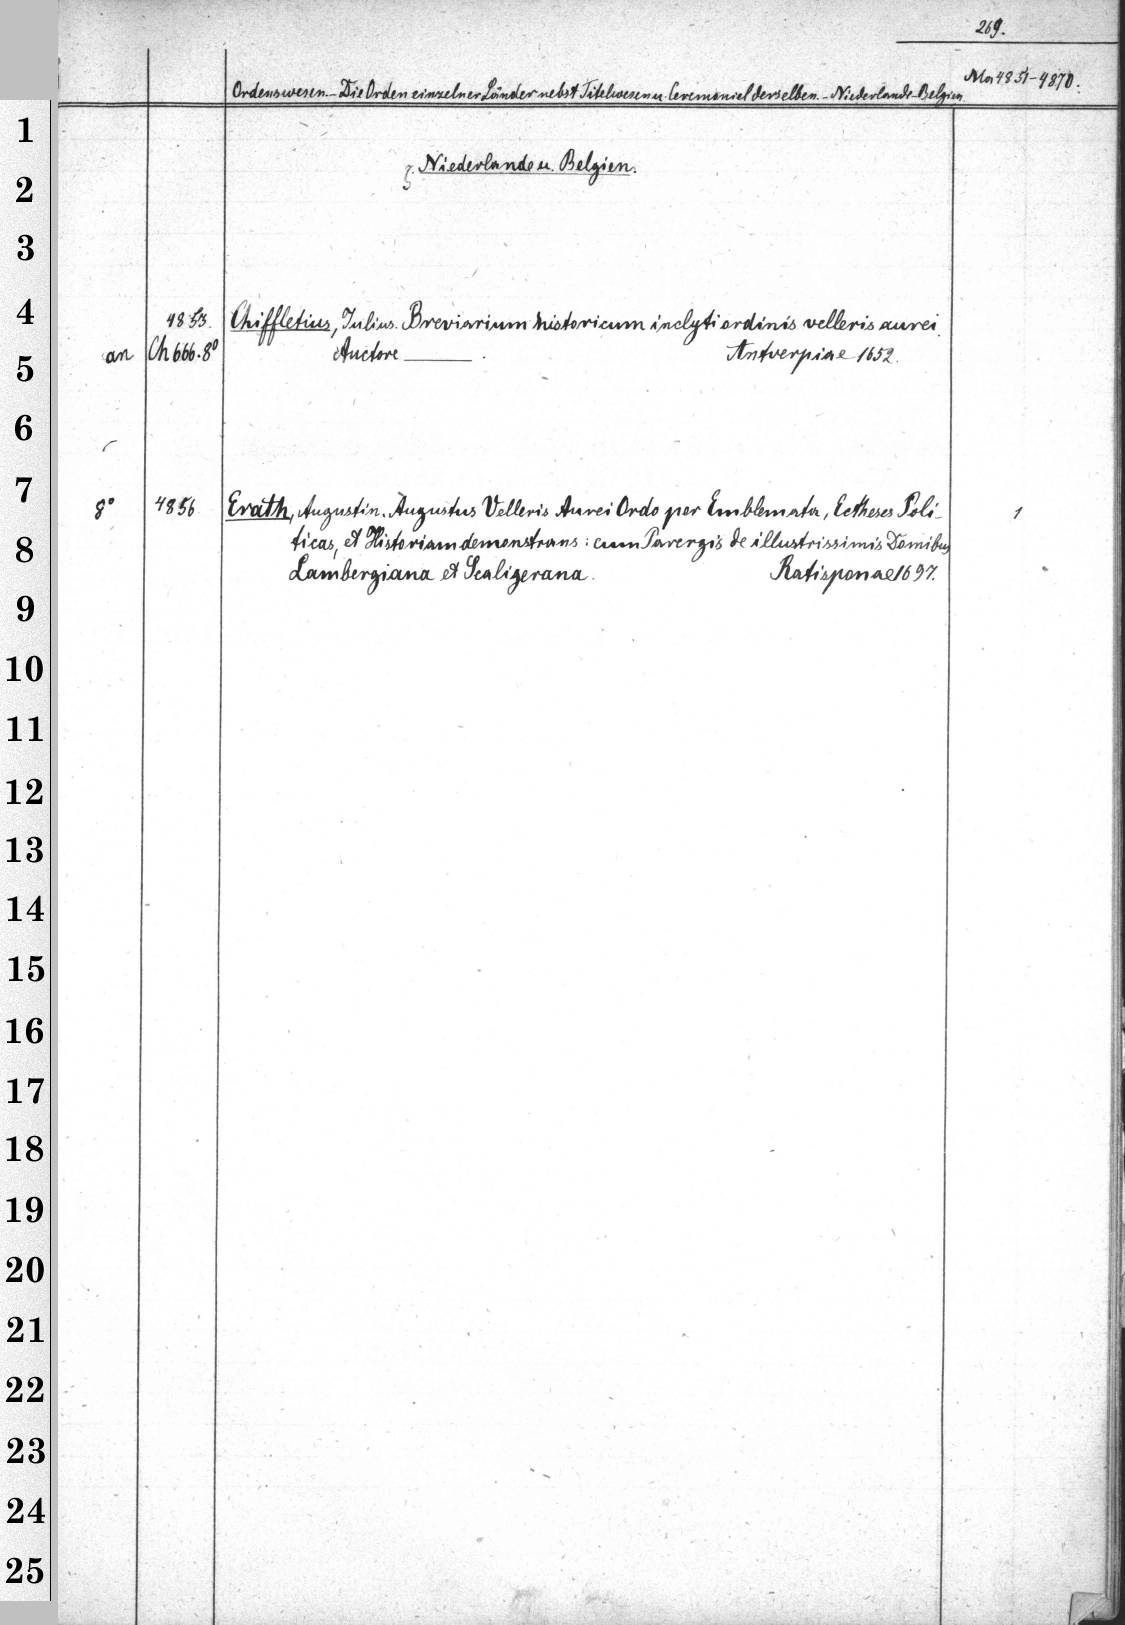 269.
Ma 4851-4870.
Ordenswesen.- Die Orden einzelner Länder nebst Titelwesen u. Ceremoniel derselben.- Niederlande-Belgien
1
ζ. Niederlande u. Belgien.
2
3
4
4853. Chiffletius, Julius. Breviarium historicum inclyti ordinis velleris aurei.
an Ch 666. 8° Auctore ———. Antverpiae 1652.
5
6
7
8° 4856 Erath, Augustin. Augustus Velleris Aurei Ordo per Emblemata, Ectheses Poli- 1
ticas, et Historiam demonstrans: cum Parergis de illustrissimis Domibus
8
Lambergiana et Scaligerana. Ratisponae 1697.
9
10
11
12
13
14
15
16
17
18
19
20
21
22
23
24
25